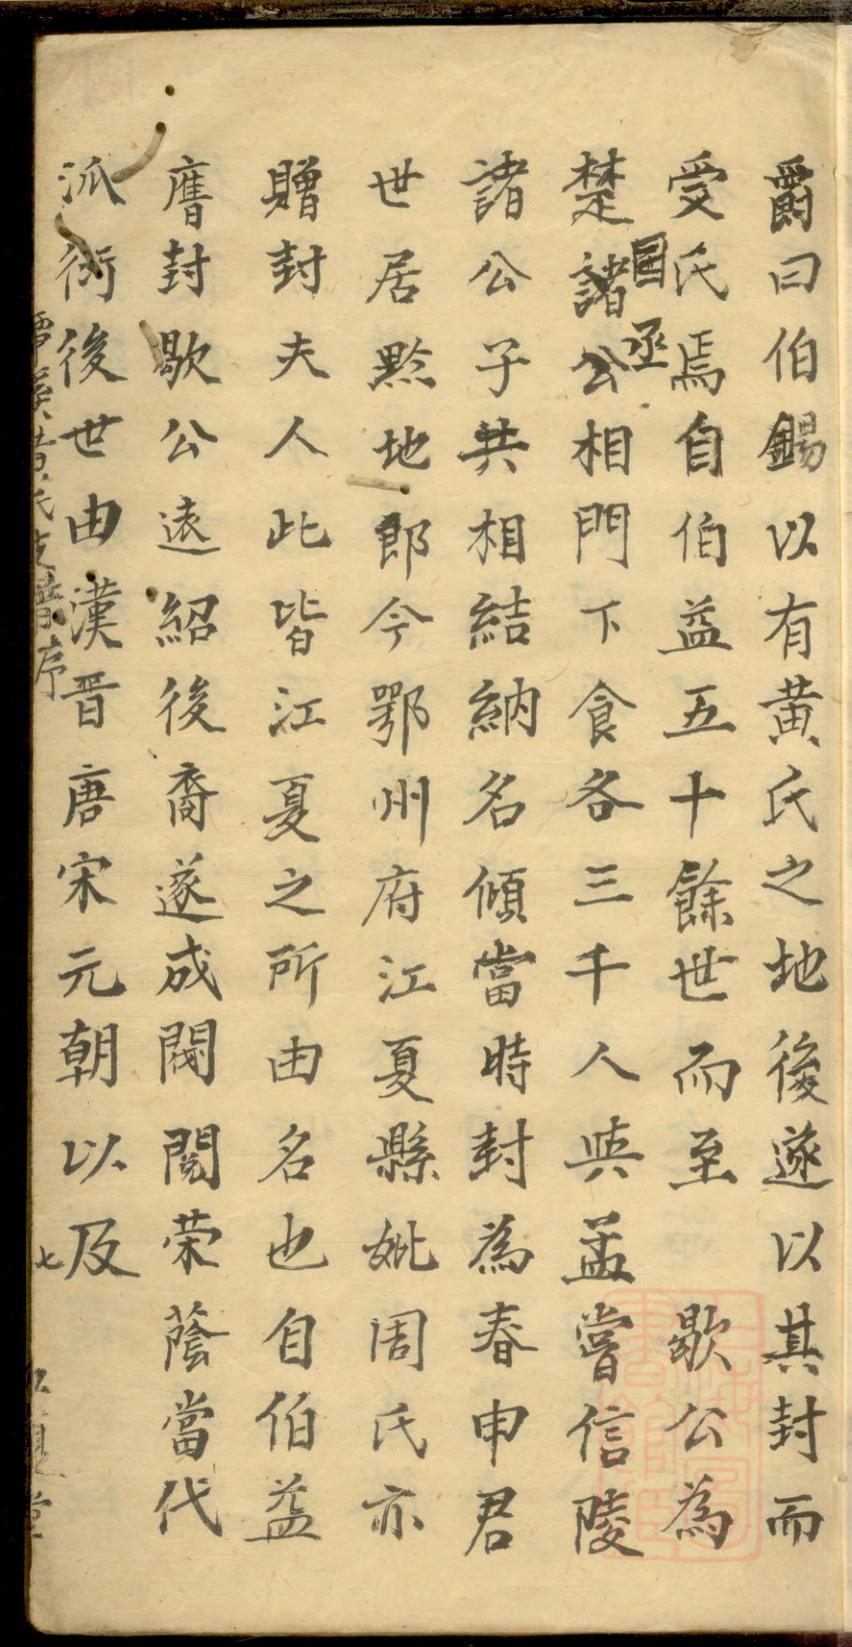 爵曰伯錫以有黄氏之地後遂以其封而
受氏焉自伯益五十餘世而至歇公為
国丞
楚諸公相門下食各三千人與孟嘗信陵
諸公子共相結納名傾當時封為春申君
世居黔地郎今鄂州府江夏縣妣周氏亦
贈封夫人此皆江夏之所由名也自伯益
膺封歇公遠紹後裔遂成閥閱荣蔭當代
派衍後世由漢晋唐宋元朝以及
黄氏支譜序
七